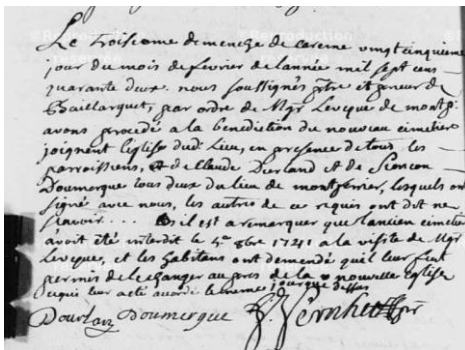 Le troisieme demenche de careme vingt cinquieme
jour du mois de fevrier de lannée mil sept cens
quarante deux. nous soussignés ptre et prieur de
Baillarguet, par ordre de Mgr Leveque de montp.
avons procedé a la benediction du nouveau cimetiere
joignent leglise dud. Lieu, en presence de tous les
parroissiens, et de Claude Durland et de
Doumergue tous deux du lieu de montferrier, lesquels ont
signé avec nous, les autres de ce requis ont dit ne
scavoir . . . . il est a remarquer que lancien cimetiere
avoit été interdit le 4e 9bre 1741 a la visite de Mgr
Leveque, et les habitans ont demendé quil leur fut
permis de le changer aupres de la nouvelle Eglise
ce qui leur a eté acordé le meme jour que dessus
Doumergue